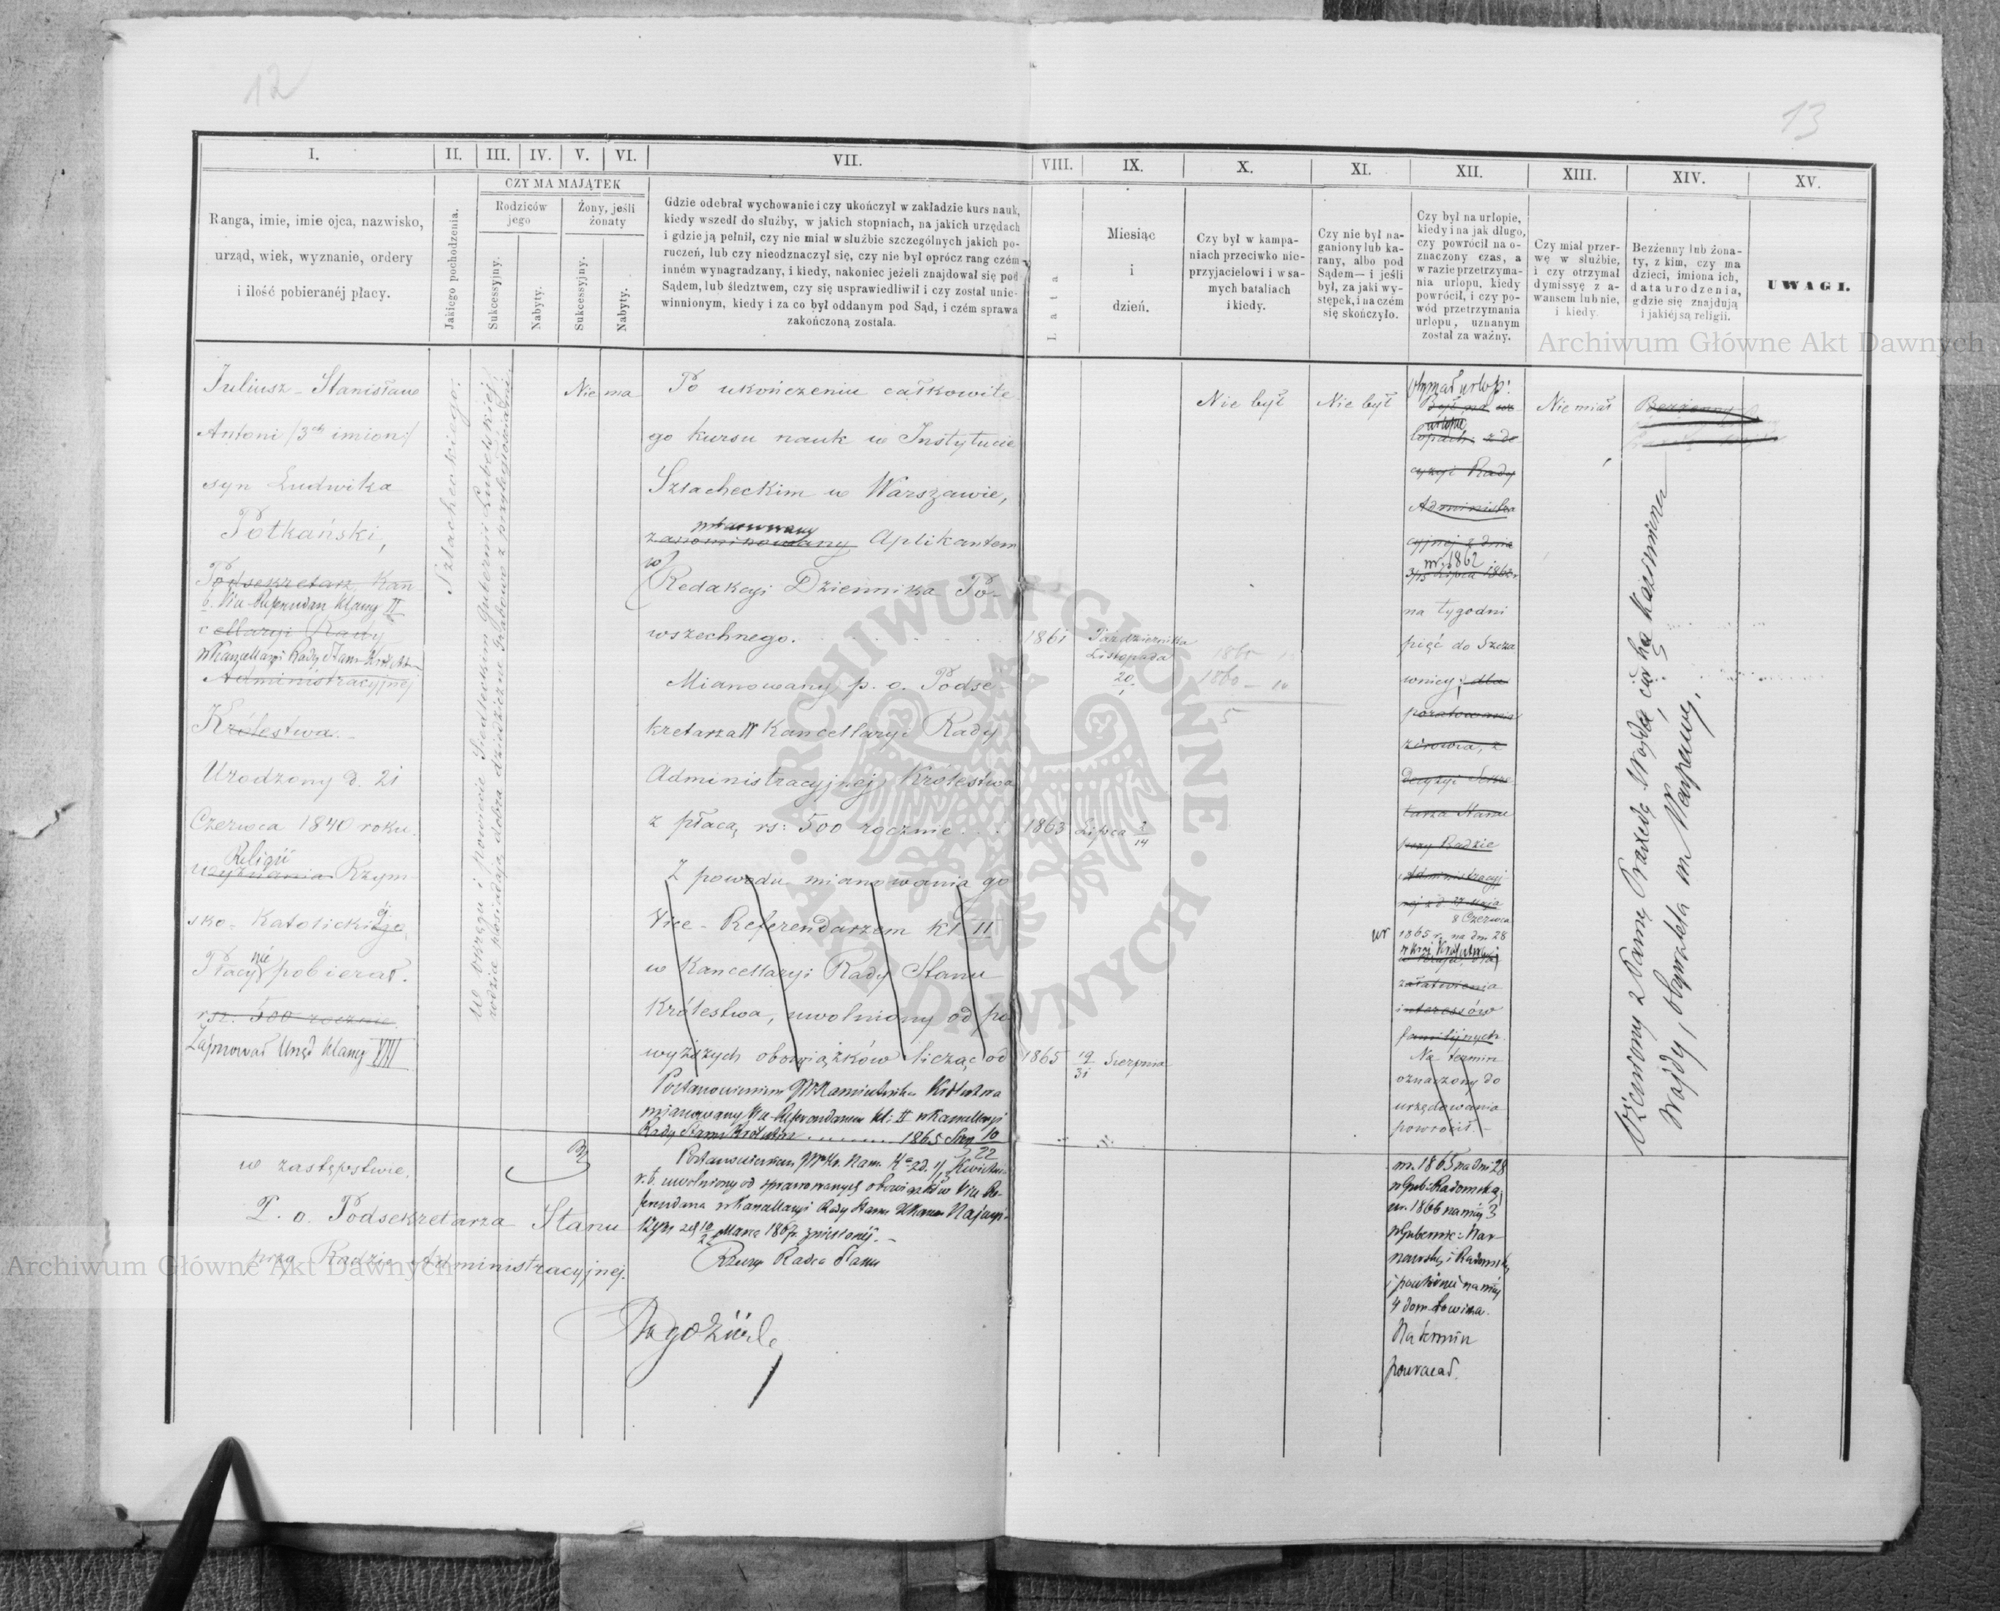 12
13
I.
II.
III.
IV.
V.
VI.
VII.
VIII.
IX.
X.
XI.
XII.
XIII.
XIV.
XV.
Ranga, imie, imie ojca, nazwisko,
urząd, wiek, wyznanie, ordery
i ilość pobieranéj płacy.
Jakiego pochodzenia.
CZY MA MAJĄTEK
Rodziców
jego
Żony, jeśli
żonaty
Sukcessyjny.
Nabyty.
Sukcessyjny.
Nabyty.
Gdzie odebrał wychowanie i czy ukończył w zakładzie kurs nauk,
kiedy wszedł do służby, w jakich stopniach, na jakich urzędach
i gdzie ją pełnił, czy nie miał w służbie szczególnych jakich po-
ruczeń, lub czy nieodznaczył się, czy nie był oprócz rang czém
inném wynagradzany, i kiedy, nakoniec jeżeli znajdował się pod
Sądem, lub śledztwem, czy się usprawiedliwił i czy został unie-
winnionym, kiedy i za co był oddanym pod Sąd, i czém sprawa
zakończoną została.
Lata
Miesiąc
i
dzień.
Czy był w kampa-
niach przeciwko nie-
przyjacielowi i w sa-
mych bataliach
i kiedy.
Czy nie był na-
ganiony lub ka-
rany, albo pod
Sądem— i jeśli
był, za jaki wy-
stępek, i na czém
się skończyło.
Czy był na urlopie,
kiedy i na jak długo,
czy powrócił na o-
znaczony czas, a
w razie przetrzyma-
nia urlopu, kiedy
powrócił, i czy po-
wód przetrzymania
urlopu, uznanym
został za ważny.
Czy miał przer-
wę w służbie,
i czy otrzymał
dymissyę z a-
wansem lub nie,
i kiedy.
Bezżenny lub żona-
ty, z kim, czy ma
dzieci, imiona ich,
data urodzenia,
gdzie się znajdują
i jakiéj są religii.
UWAGI.
Juliusz - Stanisław
Antoni /3ch imion/
syn Ludwika
Potkański,
Podsekretarz Kan
b. Vice Referendarz klassy II
cellaryi Rady
w Kancellaryi Rady Stanu
Administracyjnej
Królestwa.
Urodzony d. 21
Czerwca 1840 roku.
Religii
wyznania Rzym-
sko-Katolickiej
Płacy nie pobierał.
rsr. 500 rocznie.
Zajmował Urząd klassy VIII
Szlacheckiego.
Nie ma
Po ukończeniu całkowite
go kursu nauk w Instytucie
Szlacheckim w Warszawie,
mianowany
zanominowany Aplikantem
w
Redakcyi Dziennika Po-
wszechnego.
1861
Października
Listopada
20
1
Mianowany p. o. Podse-
kretarza w Kancellaryi Rady
Administracyjnej Królestwa
z płacą rs: 500 rocznie . . .
1863
Lipca 2
14
Z powodu mianowania go
Vice - Referendarzem kl II
w Kancellaryi Rady Stanu
Królestwa, uwolniony od po
wyższych obowiązków licząc od
1865
19
31
Sierpnia
Postanowieniem JW Namiestnika Królestwa
mianowany Vice-Referendarzem kl: II w Kancellaryi
Rady Stanu Królestwa 1865 Sierp 10
22
r. b. uwolniony od sprawowanych obowiązków Vice Re-
ferendarza w Kancellaryi Rady Stanu
Marca 1867 r. zniesionéj. –
Rzeczyw Radca Stanu
w zastępstwie.
P. o. Podsekretarza Stanu
przy Radzie Administracyjnej.
1860
1860 - 10
5
Nie był
Nie był
otrzymał urlop:
Był na ur
urlopie
lopach: z de
cyzyi Rady
Administra
cyjnej z dnia
w r. 1862
3/15 Lipca 1862 r.
na tygodni
pięć do Szcza
wnicy, dla
poratowania
zdrowia, z
decyzyi Sekre-
tarza Stanu
przy Radzie
Administracyj
nej z d 27 Maja
8 Czerwca
w 1865 r. na dni 28
załatwienia
interessów
familijnych.
Na termin
oznaczony do
urzędowania
powrócił. –
w r. 1865 na dni 28
w Gub: Radomską
w r. 1866 na mc 3
w Gubernie: War
szawską i Radomską
4 dom
Na termin
powracał.
Nie miał
Bezżenny
Ożeniony z Panną Praxedą Wojda, córką Kazimierza
Wojdy, obywatela m Warszawy.
Archiwum Główne Akt Dawnych
Archiwum Główne Akt Dawnych
ARCHIWUM GŁÓWNE · AKT DAWNYCH ·